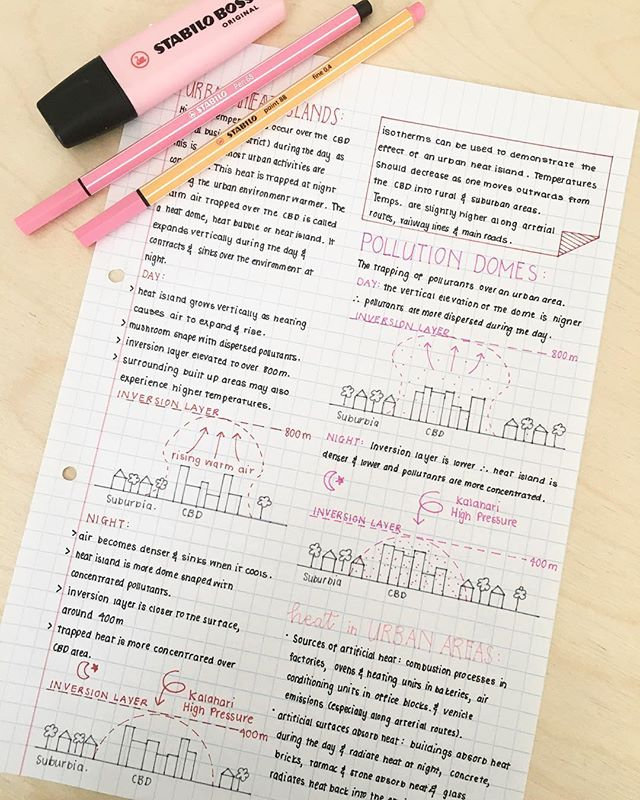 STABILO BOSS
ORIGINAL
STABILO Pen 68
STABILO point 88 fine 0,4
URBAN HEAT ISLANDS:
occur over the CBD
during the day as
most urban activities are
This heat is trapped at night
the urban environment warmer. The
warm air trapped over the CBD is called
a heat dome, heat bubble or heat island. It
expands vertically during the day &
contracts & sinks over the environment at
night.
DAY:
> heat island grows vertically as heating
causes air to expand & rise.
> mushroom shape with dispersed pollutants.
> inversion layer elevated to over 800m.
> surrounding built up areas may also
experience higher temperatures.
INVERSION LAYER
800m
rising warm air
Suburbia. CBD
NIGHT:
> air becomes denser & sinks when it cools.
> heat island is more dome shaped with
concentrated pollutants.
> inversion layer is closer to the surface,
around 400m
> trapped heat is more concentrated over
CBD area.
Kalahari
High Pressure
INVERSION LAYER
400m
Suburbia. CBD
isotherms can be used to demonstrate the
effect of an urban heat island. Temperatures
should decrease as one moves outwards from
the CBD into rural & suburban areas.
Temps. are slightly higher along arterial
routes, railway lines & main roads.
POLLUTION DOMES:
The trapping of pollutants over an urban area.
DAY: the vertical elevation of the dome is higher
∴ pollutants are more dispersed during the day.
INVERSION LAYER
800m
Suburbia CBD
NIGHT: Inversion layer is lower ∴ heat island is
denser & lower and pollutants are more concentrated.
Kalahari
High Pressure
INVERSION LAYER
400m
Suburbia CBD
heat in URBAN AREAS:
· Sources of artificial heat: combustion processes in
factories, ovens & heating units in bakeries, air
conditioning units in office blocks & vehicle
emissions (especially along arterial routes).
· artificial surfaces absorb heat: buildings absorb heat
during the day & radiate heat at night, concrete,
bricks, tarmac & stone absorb heat & glass
radiates heat back into the